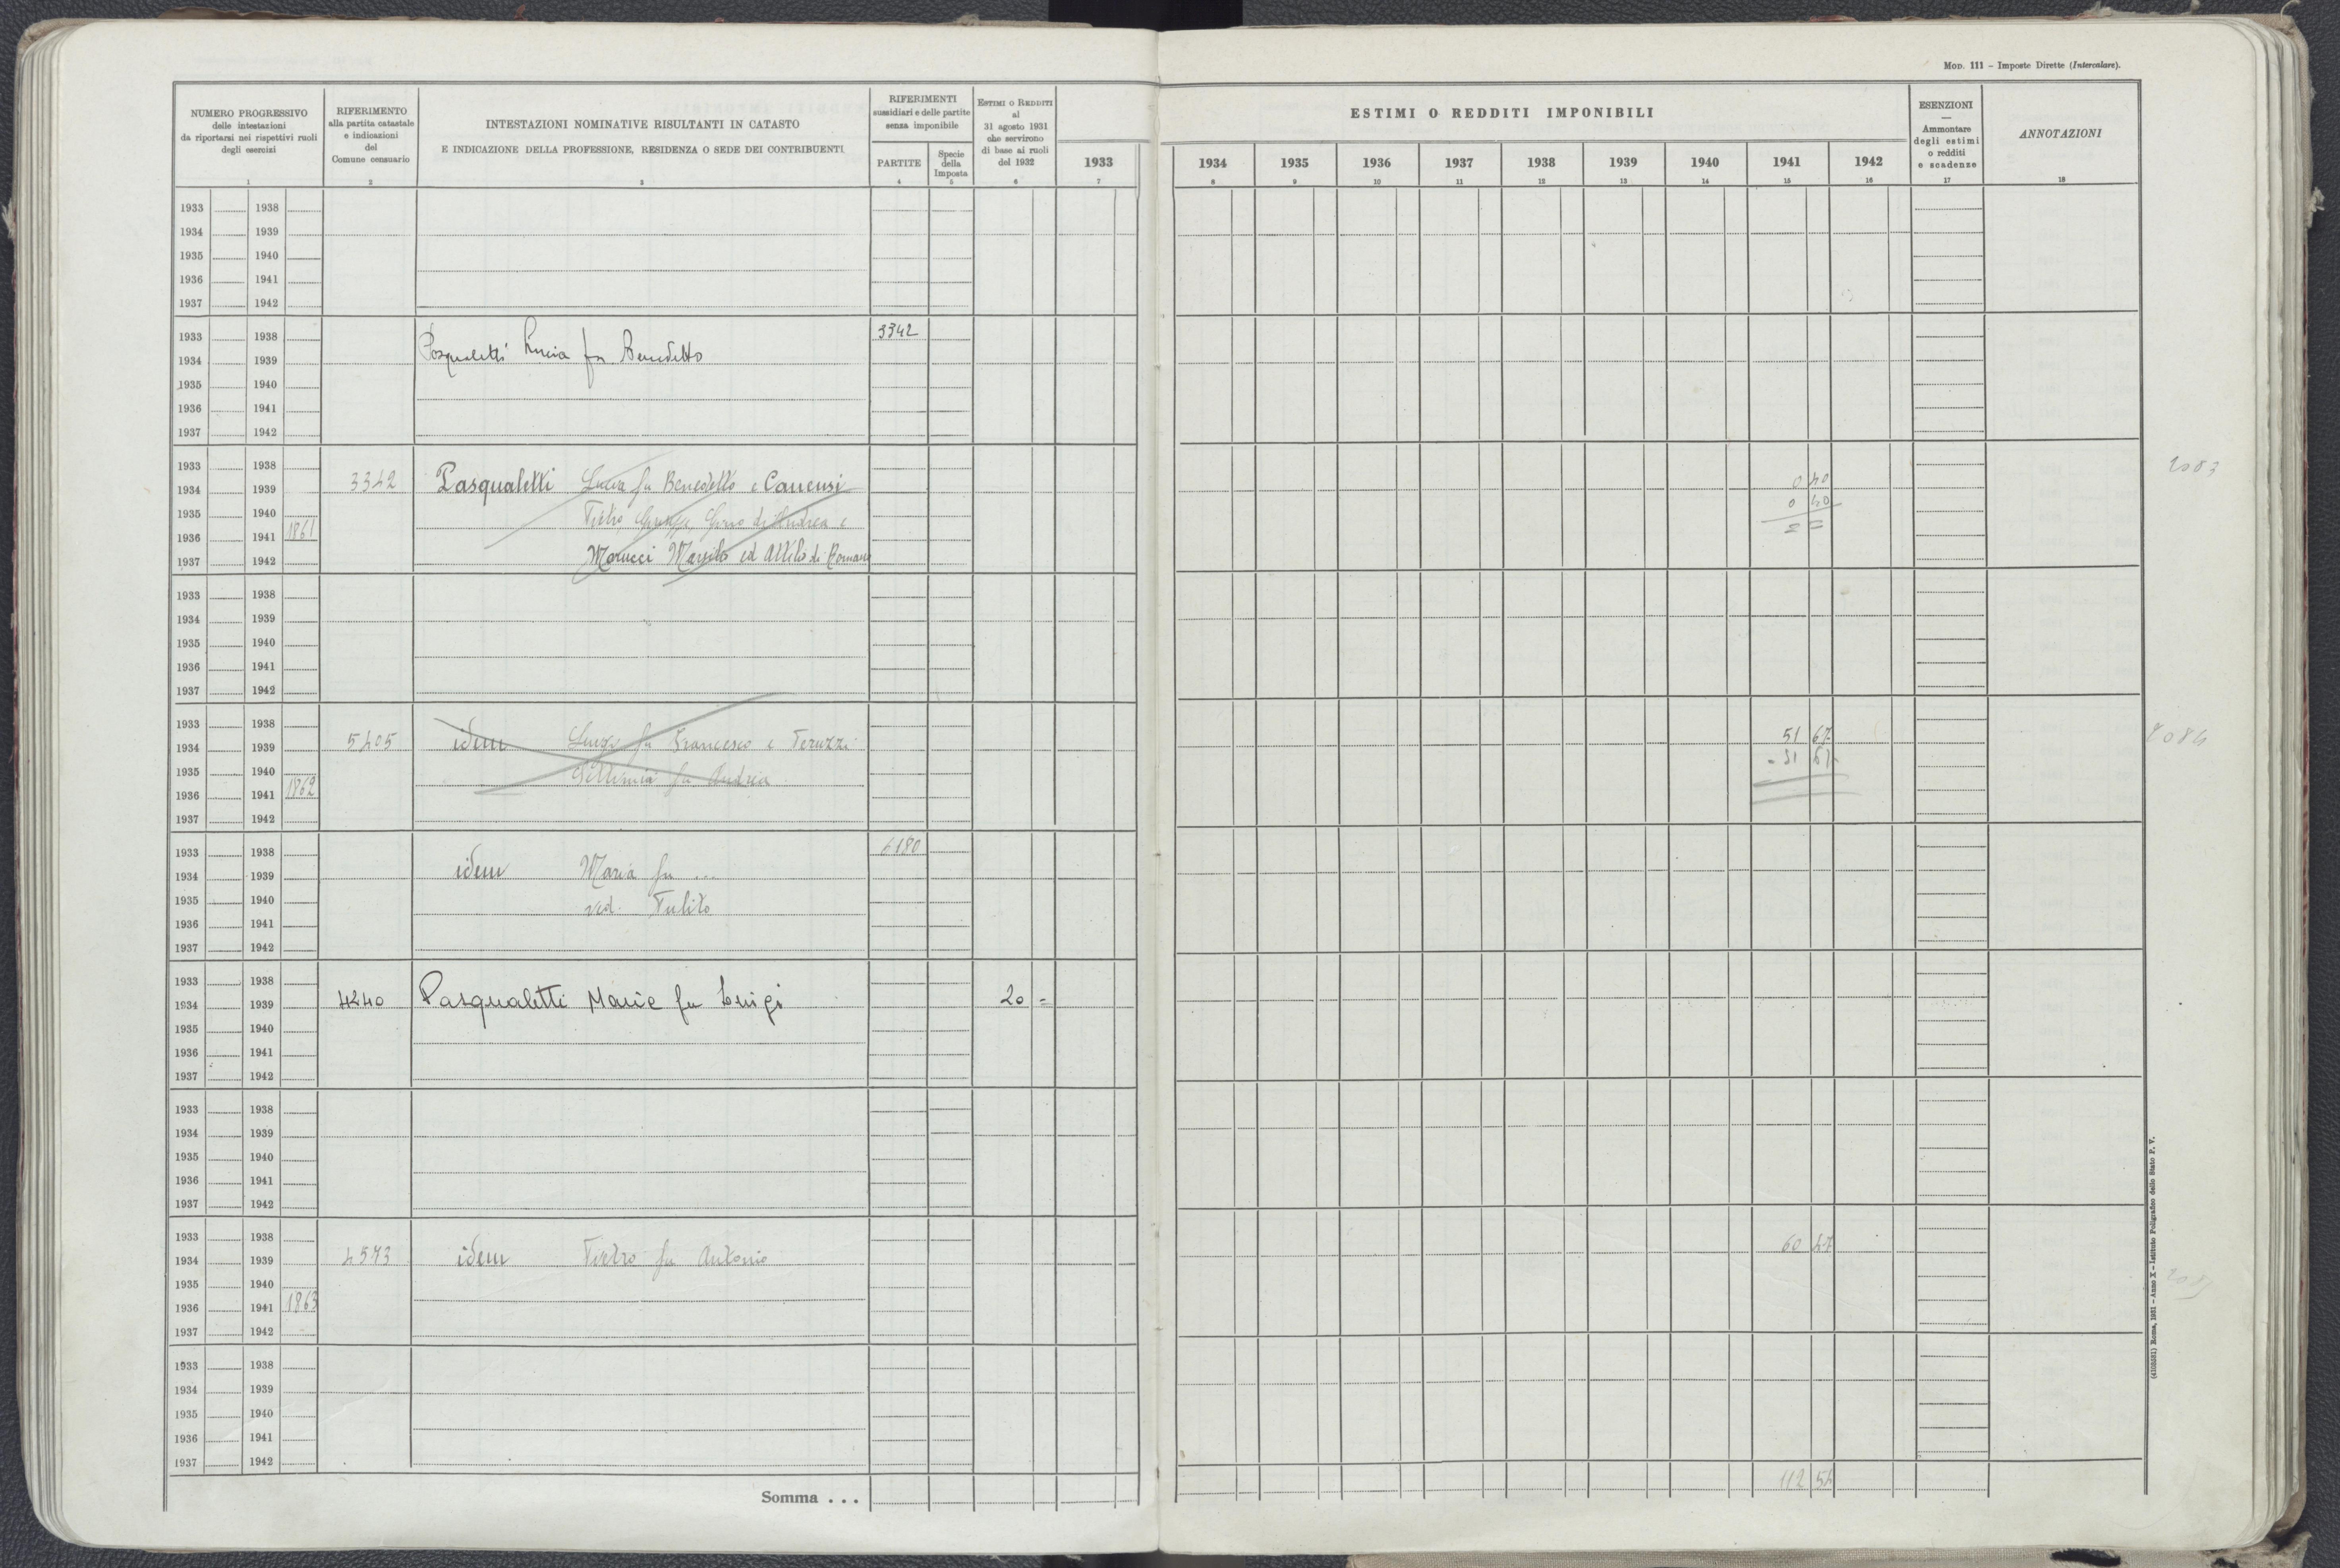 Mod. 111 – Imposte Dirette (Intercalare).
NUMERO PROGRESSIVO
delle intestazioni
da riportarsi nei rispettivi ruoli
degli esercizi
1
RIFERIMENTO
alla partita catastale
e indicazioni
del
Comune censuario
2
INTESTAZIONI NOMINATIVE RISULTANTI IN CATASTO
E INDICAZIONE DELLA PROFESSIONE, RESIDENZA O SEDE DEI CONTRIBUENTI
3
RIFERIMENTI
sussidiari e delle partite
senza imponibile
PARTITE
4
Specie
della
Imposta
5
Estimi o Redditi
al
31 agosto 1931
che servirono
di base ai ruoli
del 1932
6
ESTIMI O REDDITI IMPONIBILI
1933 1934 1935 1936 1937 1938 1939 1940 1941 1942
7 8 9 10 11 12 13 14 15 16
ESENZIONI
—
Ammontare
degli estimi
o redditi
e scadenze
17
ANNOTAZIONI
18
1933 1938
1934 1939
1935 1940
1936 1941
1937 1942
1933 1938 3342
1934 1939 Pasqualetti Lucia fu Benedetto
1935 1940
1936 1941
1937 1942
1933 1938 2003
1934 1939 3342 Pasqualetti Lucia fu Benedetto e Canensi 0 40
1935 1940 Pietro, Gino di Andrea e 0 40
1936 1941 1861 = =
1937 1942 Marucci ed Attilio di Romano
1933 1938
1934 1939
1935 1940
1936 1941
1937 1942
1933 1938
1934 1939 5405 idem fu Francesco e Teruzzi 51 67
1935 1940 fu Andrea - 51 67
1936 1941 1862
1937 1942
1933 1938 6180
1934 1939 idem Maria fu ...
1935 1940 ved. Tulito
1936 1941
1937 1942
1933 1938
1934 1939 4240 Pasqualetti Maria fu Luigi 20 =
1935 1940
1936 1941
1937 1942
1933 1938
1934 1939
1935 1940
1936 1941
1937 1942
1933 1938
1934 1939 4573 idem Pietro fu Antonio 60 47
1935 1940
1936 1941 1863
1937 1942
1933 1938
1934 1939
1935 1940
1936 1941
1937 1942
Somma . . . 112 54
(4105581) Roma, 1931 – Anno X – Istituto Poligrafico dello Stato P. V.